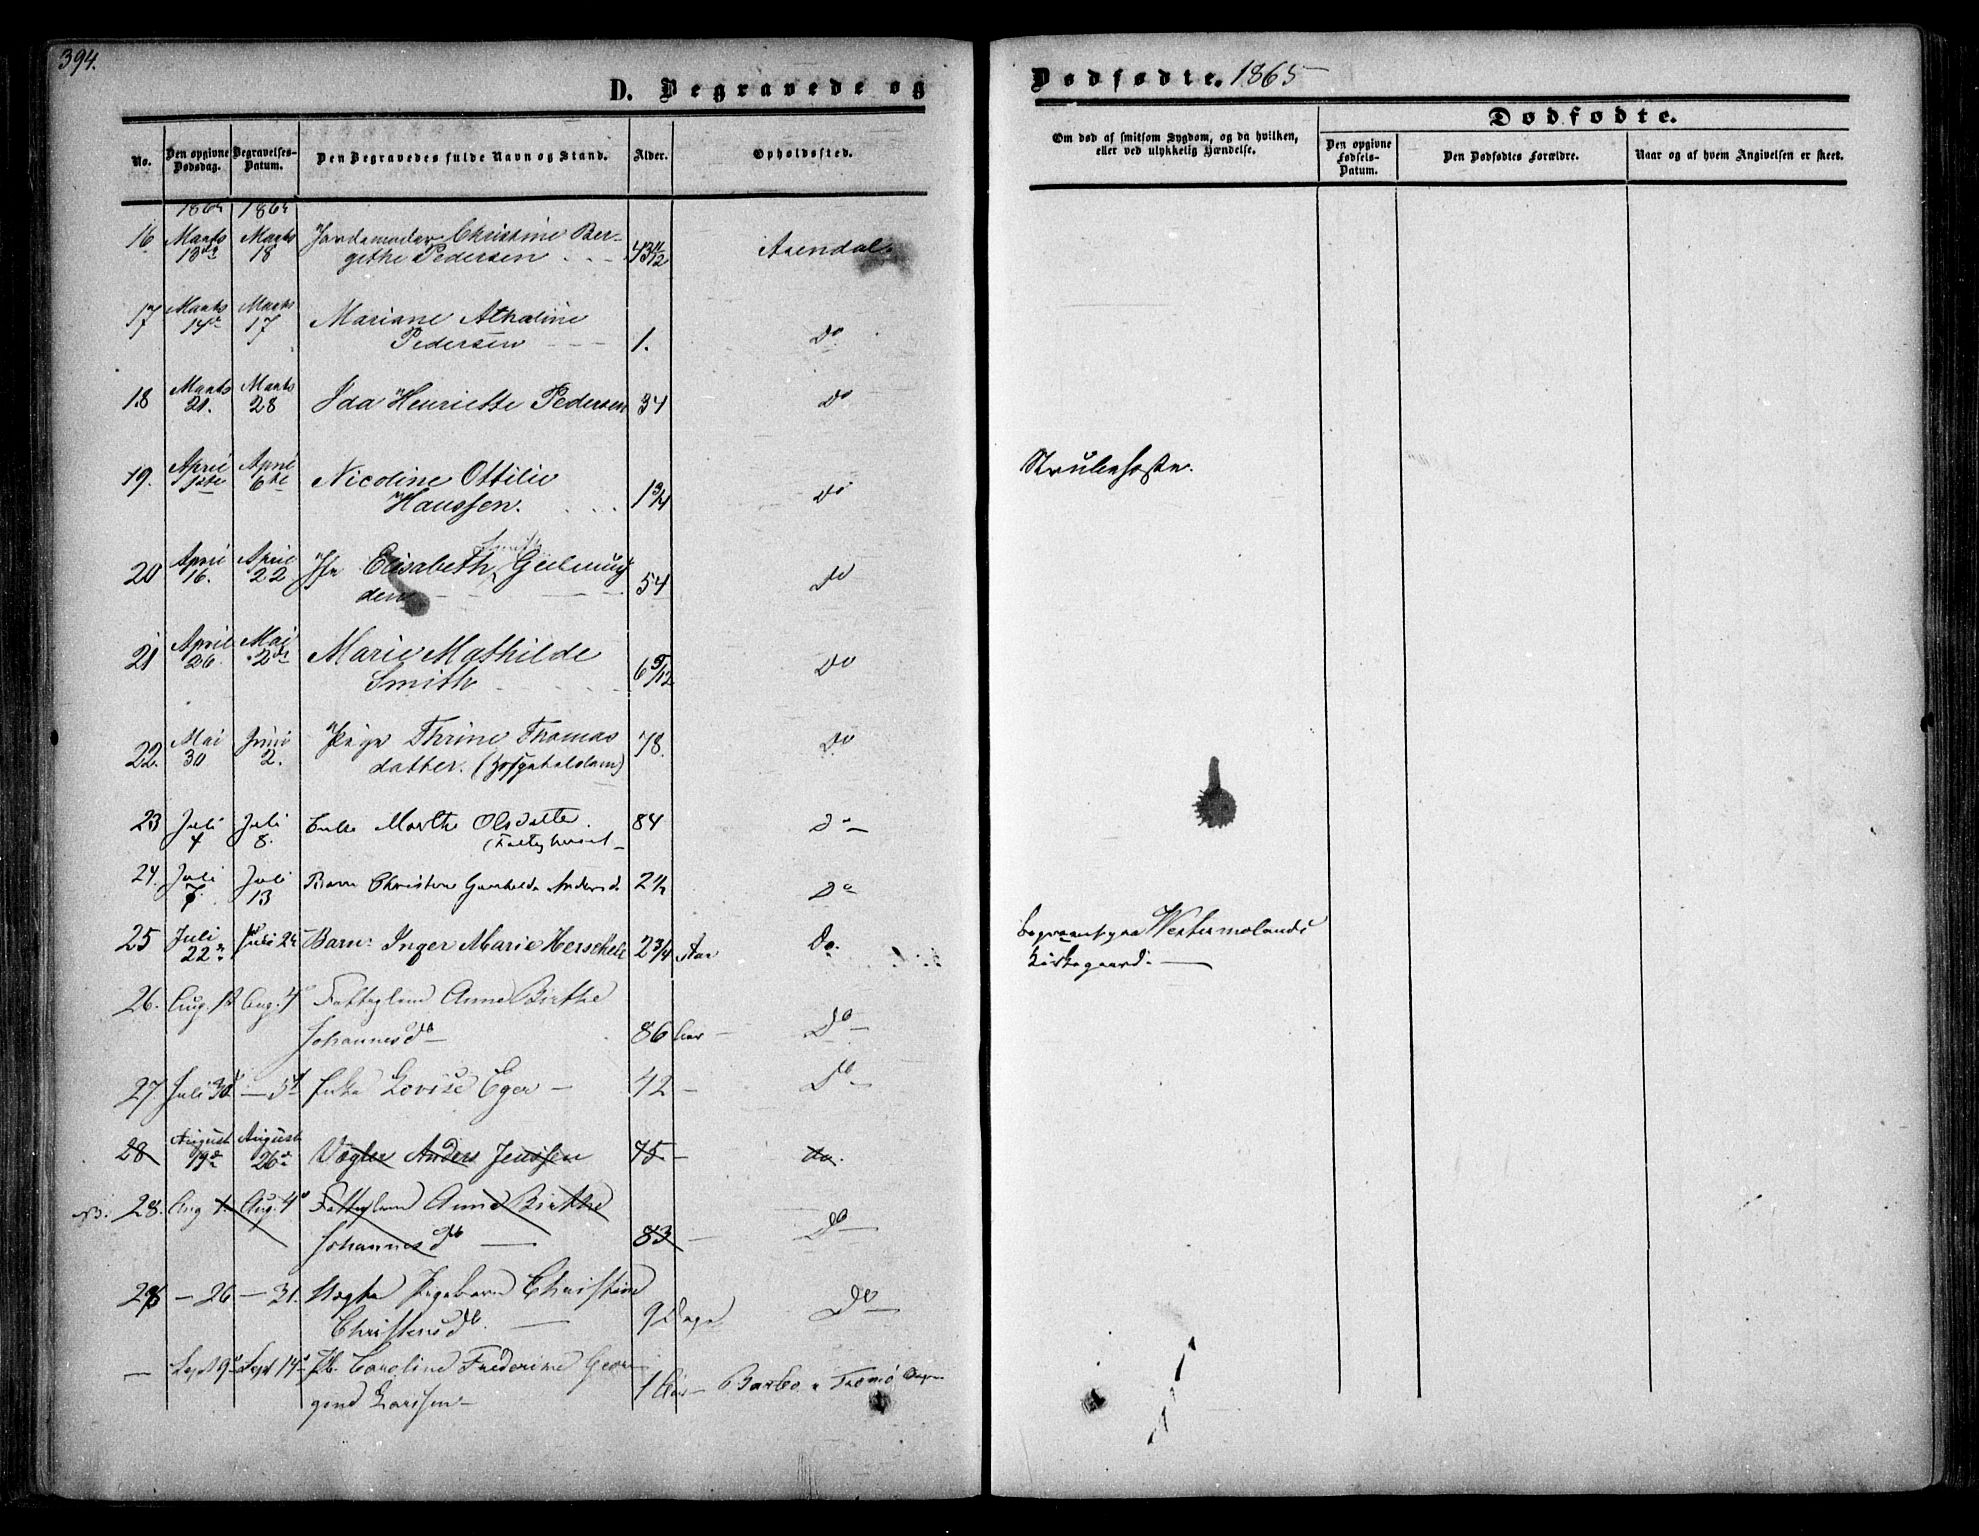 394.
D. Begravede og
No.
Den opgivne Dødsdag.
Begravelses-Datum.
Den Begravedes fulde Navn og Stand.
Alder.
Opholdssted.
1865 1865
16 Marts 13de Marts 18 Jordemoder Christine Ber-
gethe Pedersen 43 11/12 Arendal
17 Marts 14de Marts 17 Mariane Athaline
Pedersen 1. Do
18 Marts 21. Marts 28 Ida Henriette Pedersen 34 Do
19. April 1ste April 6te Nicoline Ottilie
Hanssen. 1 3/4 Do
20 April 16. April 22 Elisabeth Smith Geelmuy
den 54 Do
21 April 26 Mai 2de Marie Mathilde
Smith 6 5/12 Do
22. Mai 30 Juni 2. Pige Thrine Thomas
datter. (Hospitalslem) 78. Do
23 Juli 4 Juli 8. Enke Marthe Olsdatter.
84 Do
24. Juli 7. Juli 13 Barn Christine Gunhilde Andersd. Do
25 Juli 22 Juli Barn: Inger Marie Herschell 2 3/4 Aar Do.
26. Aug. 1 Aug. 4 Fattiglem Anne Birthe
Johannesd 86 Aar Do
27. Juli 30 5 Enke Lovise Eger 42 Do
28 August 19de August 26de Vægter Anders Jenssen 75 do.
28. Aug 1. Aug. 4 Fattiglem Anne Birthe
Johannesd 83 Do
28 26 31. Pigebarn Christine
Christensd. 9 Dage Do
Sept 9 Sept 14 Pb. Caroline Frederikke Geor
gine Larssen 1 Aar Barbo Tromø
Dødfødte. 1865
Om død af smitsom Sygdom, og da hvilken,
eller ved ulykkelig Hændelse.
Dødfødte.
Den opgivne Fødsels-Datum.
Den Dødfødtes Forældre.
Naar og af hvem Angivelsen er skeet.
Strubehoste.
begravet paa Westermolands
Kirkegaard.